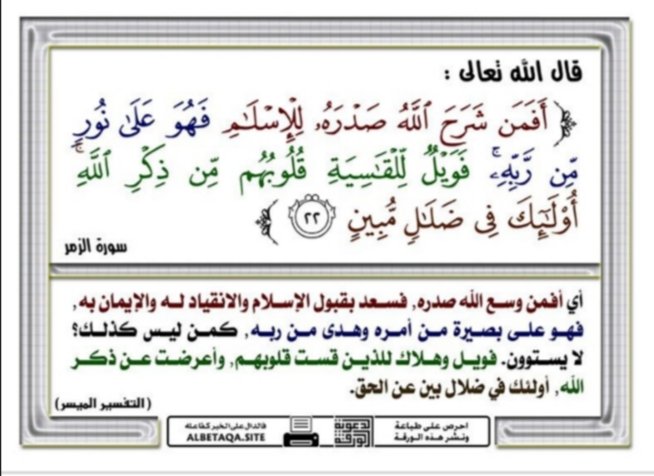 قال الله تعالى :
﴿ أَفَمَن شَرَحَ ٱللَّهُ صَدْرَهُۥ لِلْإِسْلَٰمِ فَهُوَ عَلَىٰ نُورٍ
مِّن رَّبِّهِۦ ۚ فَوَيْلٌ لِّلْقَٰسِيَةِ قُلُوبُهُم مِّن ذِكْرِ ٱللَّهِ ۚ
أُو۟لَٰٓئِكَ فِى ضَلَٰلٍ مُّبِينٍ ٢٢ ﴾
سورة الزمر
أي أفمن وسع الله صدره, فسعد بقبول الإسلام والانقياد له والإيمان به,
فهو على بصيرة من أمره وهدى من ربه, كمن ليس كذلك؟
لا يستوون. فويل وهلاك للذين قست قلوبهم, وأعرضت عن ذكر
الله, أولئك في ضلال بين عن الحق.
(التفسير الميسر)
احرص على طباعة
ونشر هذه الورقة
دعوية
الورقة
فالدال على الخير كفاعله
ALBETAQA.SITE